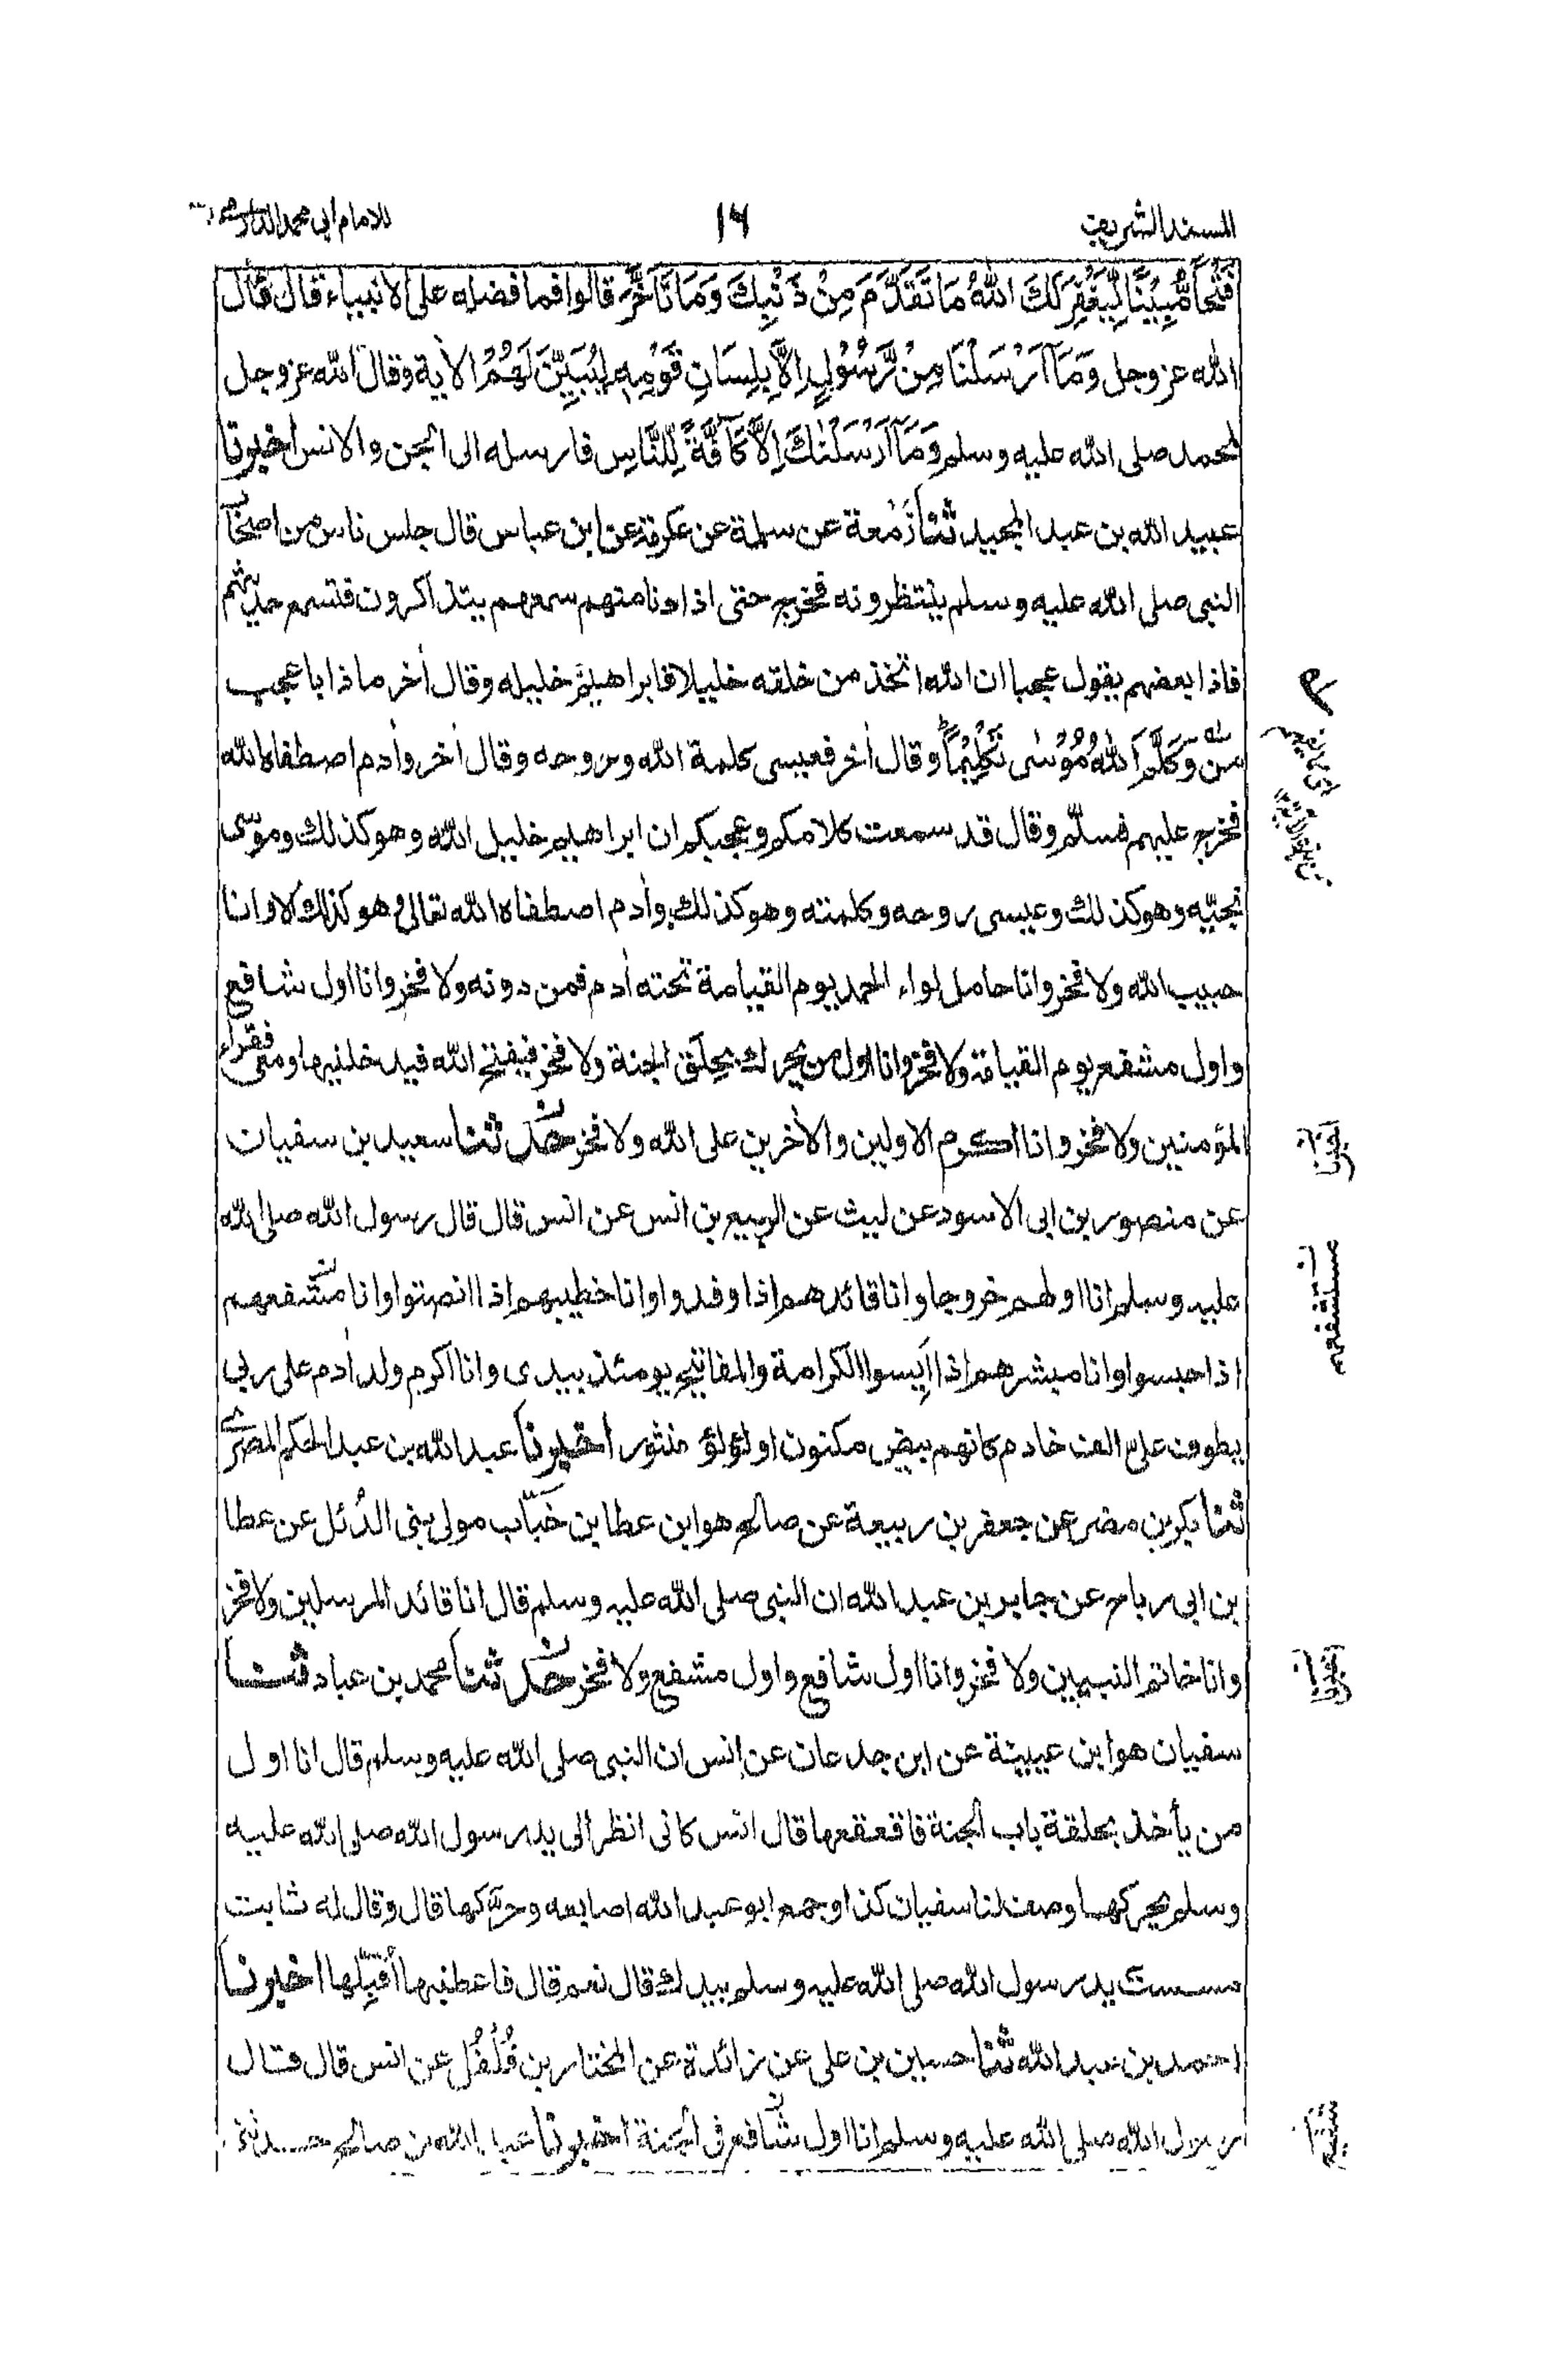 المسند الشريف
١٦
للامام ابي محمد الدارمي
فَتْحًا مُّبِيْنًا لِّيَغْفِرَ لَكَ اللّٰهُ مَا تَقَدَّمَ مِنْ ذَنْبِكَ وَمَا تَأَخَّرَ قالوا فما فضله على الانبياء قال قال
الله عز وجل وَمَآ اَرْسَلْنَا مِنْ رَّسُوْلٍ اِلَّا بِلِسَانِ قَوْمِهٖ لِيُبَيِّنَ لَهُمُ الأية وقال الله عز وجل
لمحمد صلى الله عليه وسلم وَمَآ اَرْسَلْنٰكَ اِلَّا كَآفَّةً لِّلنَّاسِ فارسله الى الجن والانس اخبرنا
عبيد الله بن عبد المجيد ثنا زَمْعة عن سلمة عن عكرمة عن ابن عباس قال جلس ناس من اصحاب
النبي صلى الله عليه وسلم ينتظرونه فخرج حتى اذا دنا منهم سمعهم يتذاكرون فتسمع حديثهم
فاذا بعضهم يقول عجبا ان الله اتخذ من خلقه خليلا فابراهيم خليله وقال أخر ماذا باعجب
من وَكَلَّمَ اللّٰهُ مُوْسٰى تَكْلِيْمًا وقال أخر فعيسى كلمة الله وروحه وقال أخر وأدم اصطفاه الله
فخرج عليهم فسلّم وقال قد سمعت كلامكم وعجبكم ان ابراهيم خليل الله وهو كذلك وموسى
نجيّه وهو كذلك وعيسى روحه وكلمته وهو كذلك وأدم اصطفاه الله تعالى وهو كذلك الا وانا
حبيب الله ولا فخر وانا حامل لواء الحمد يوم القيامة تحته أدم فمن دونه ولا فخر وانا اول شافع
واول مشفع يوم القيامة ولا فخر وانا اول من يحرك بحِلَق الجنة ولا فخر فيفتح الله فيدخلنيها ومعى فقراء
المؤمنين ولا فخر وانا اكرم الاولين والأخرين على الله ولا فخر حدثنا سعيد بن سفيان
عن منصور بن ابى الاسود عن ليث عن الربيع بن انس عن انس قال قال رسول الله صلى الله
عليه وسلم انا اولهم خروجا وانا قائدهم اذا وفدوا وانا خطيبهم اذا انصتوا وانا مشفعهم
اذا حبسوا وانا مبشرهم اذا اَيِسوا الكرامة والمفاتيح يومئذ بيدى وانا اكرم ولد أدم على ربي
يطوف علىّ الف خادم كانهم بيض مكنون او لؤلؤ منثور اخبرنا عبد الله بن عبد الحكم المصرى
ثنا بكر بن مضر عن جعفر بن ربيعة عن صالح هو ابن عطا بن خَبّاب مولى بنى الدُئل عن عطا
بن ابى رباح عن جابر بن عبد الله ان النبى صلى الله عليه وسلم قال انا قائد المرسلين ولا فخر
وانا خاتم النبيين ولا فخر وانا اول شافع واول مشفع ولا فخر حدثنا محمد بن عباد ثنا
سفيان هو ابن عيينة عن ابن جدعان عن انس ان النبى صلى الله عليه وسلم قال انا اول
من يأخذ بحلقة باب الجنة فاقعقعها قال انس كانى انظر الى يد رسول الله صلى الله عليه
وسلم يحركها وصف لنا سفيان كذا وجمع ابو عبد الله اصابعه وحرّكها قال وقال له ثابت
مسست يد رسول الله صلى الله عليه وسلم بيدك قال نعم قال فاعطنيها اُقَبِّلُها اخبرنا
احمد بن عبد الله ثنا حسين بن على عن زائدة عن المختار بن فُلْفُل عن انس قال قال
رسول الله صلى الله عليه وسلم انا اول شافع فى الجنة اخبرنا عبد الله بن صالح حدثني
اخبرنا
مستشفعهم
اخبرنا